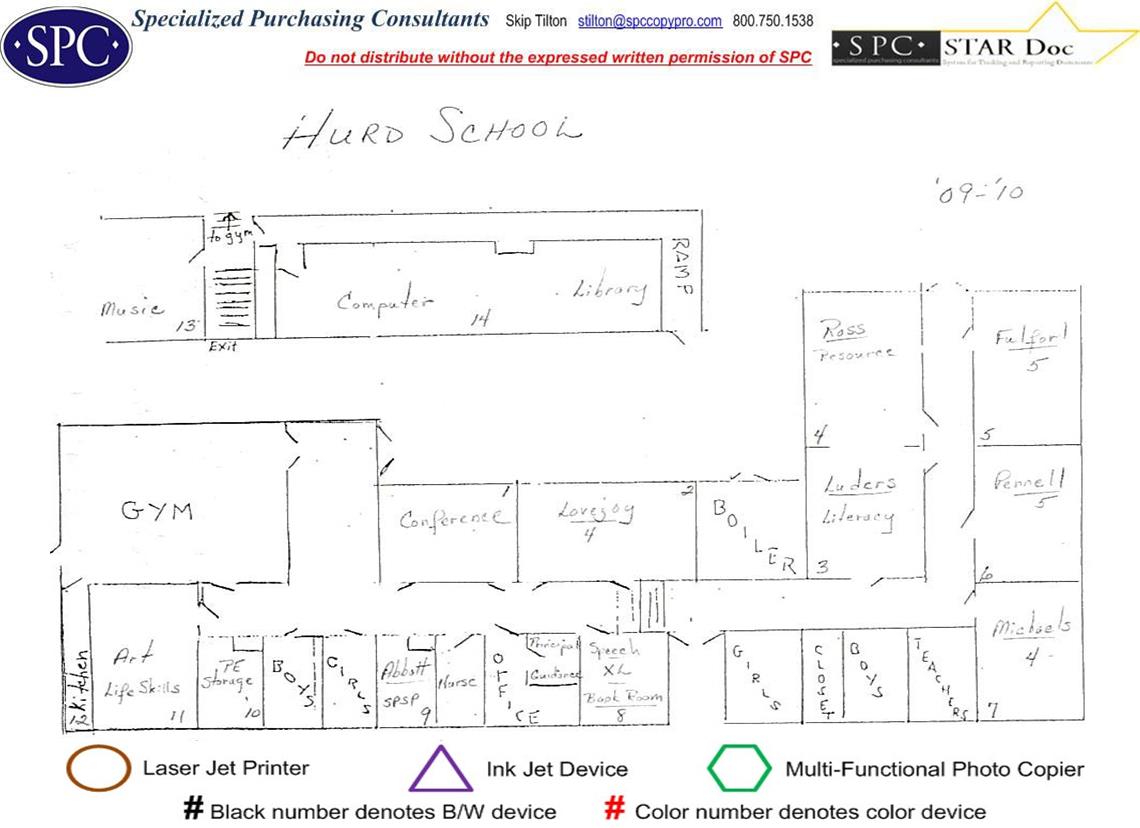 SPC
Specialized Purchasing Consultants Skip Tilton stilton@spccopypro.com 800.750.1538
Do not distribute without the expressed written permission of SPC
SPC STAR Doc
specialized purchasing consultants System for Tracking and Reporting Documents
HURD SCHOOL
'09-'10
to gym
Music
13
Exit
Computer
14
Library
RAMP
Ross
Resource
4
Fulford
5
5
GYM
Conference
1
Lovejoy
4
2
BOILER
Luders
Literacy
3
Pennell
5
6
To Kitchen
Art
Life Skills
11
PE
Storage
10
BOYS
GIRLS
Abbott
SPSP
9
Nurse
OFFICE
Principal
Guidance
Speech
XL
Book Room
8
GIRLS
CLOSET
BOYS
TEACHERS
Michaels
4
7
Laser Jet Printer
Ink Jet Device
Multi-Functional Photo Copier
# Black number denotes B/W device
# Color number denotes color device